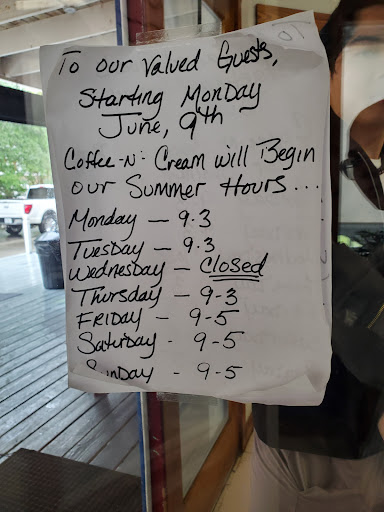 To our Valued Guests,
Starting Monday
June, 9th
Coffee-N-Cream will Begin
our Summer Hours...
Monday - 9.3
Tuesday - 9.3
Wednesday - Closed
Thursday - 9-3
Friday - 9-5
Saturday - 9-5
Sunday - 9-5